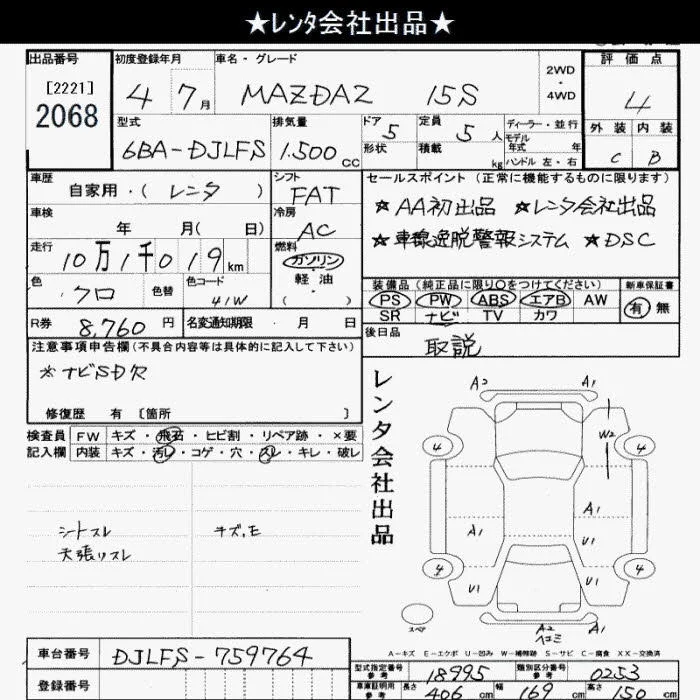 ★レンタ会社出品★
出品番号
[2221]
2068
初度登録年月
4 7月
車名・グレード
MAZDA2 15S
2WD
・
4WD
評価点
4
外装 内装
C B
型式
6BA-DJLFS
排気量
1.500cc
ドア 5
形状
定員 5人
積載 kg
ディーラー・並行
モデル
年式 年
ハンドル 左・右
車歴
自家用・(レンタ)
シフト
FAT
車検
年 月( 日)
冷房
AC
走行
10万1千019km
燃料
ガソリン
軽油
( )
色
クロ
色替
色コード
41W
R券 8,760円
名変通知期限 ・ 月 日
セールスポイント(正常に機能するものに限ります)
★AA初出品 ★レンタ会社出品
★車線逸脱警報システム ★DSC
装備品(純正品に限り○をつけてください)
PS PW ABS エアB AW
SR ナビ TV カワ
新車保証書
有 無
後日品
取説
注意事項申告欄(不具合内容等は具体的に記入して下さい)
※ナビSD欠
修復歴 有 〔箇所 〕
検査員
記入欄
FW キズ・飛石・ヒビ割・リペア跡・×要
内装 キズ・汚レ・コゲ・穴・スレ・キレ・破レ
シートスレ
天張りスレ
キズ,モ
レンタ会社出品
A2 A1
W2
4 4
A1
A1 U1
4 4
U1 U1
スペア
A2 A1
ヘコミ
A-キズ E-エクボ U-凹み W-補修跡 S-サビ C-腐食 XX-交換済
車台番号 DJLFS-759764
登録番号
型式指定番号
参考
18995
類別区分番号
参考
0253
車庫証明用
参考
長さ 406cm 幅 169cm 高さ 150cm